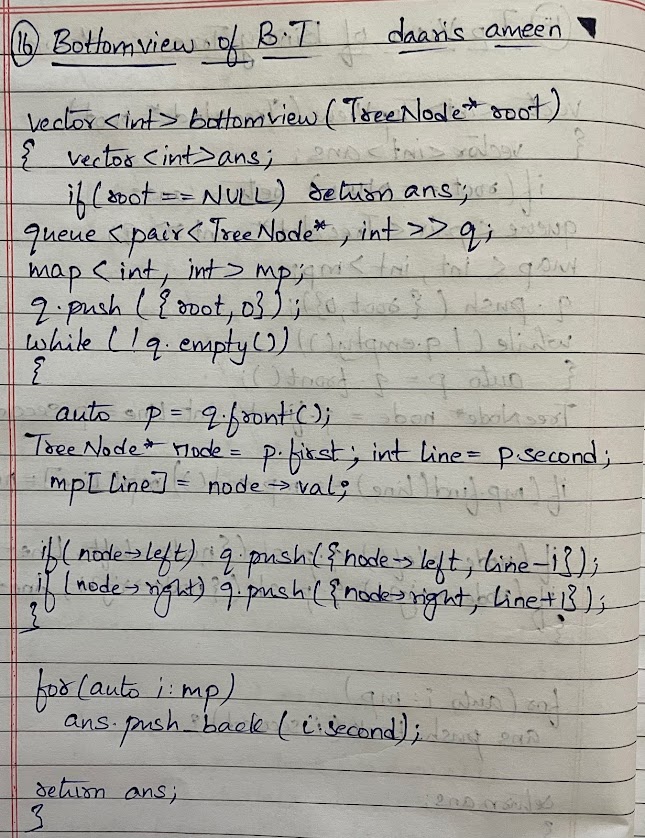 16 Bottomview of B.T daaris ameen
vector <int> bottomview (TreeNode* root)
{ vector <int> ans;
if (root == NULL) return ans;
queue <pair< TreeNode*, int >> q;
map < int, int > mp;
q.push ( {root, 0} );
while ( ! q.empty())
{
auto p = q.front();
TreeNode* node = p.first; int line = p.second;
mp[line] = node → val;
if (node→left) q.push({node→left, line-1});
if (node→right) q.push({node→right, line+1});
}
for (auto i : mp)
ans.push_back (i.second);
return ans;
}